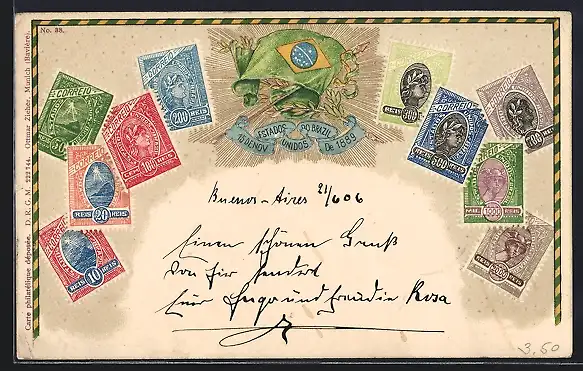 No. 38.
Carte philatélique déposée. D. R. G. M. 222 744. Ottmar Zieher, Munich (Bavière).
CORREIO
50
CORREIO
CEM 100 REIS
CORREIO
200
REIS 20 REIS
10 REIS
ESTADOS UNIDOS DO BRAZIL
15 DE NOV. DE 1889
300
CORREIO
500 REIS
CORREIO
700 REIS
CORREIO
MIL 1000 REIS
2000
Buenos-Aires 21/6 06
Einen schönen Gruß
von hier sendet
Rosa
3.50